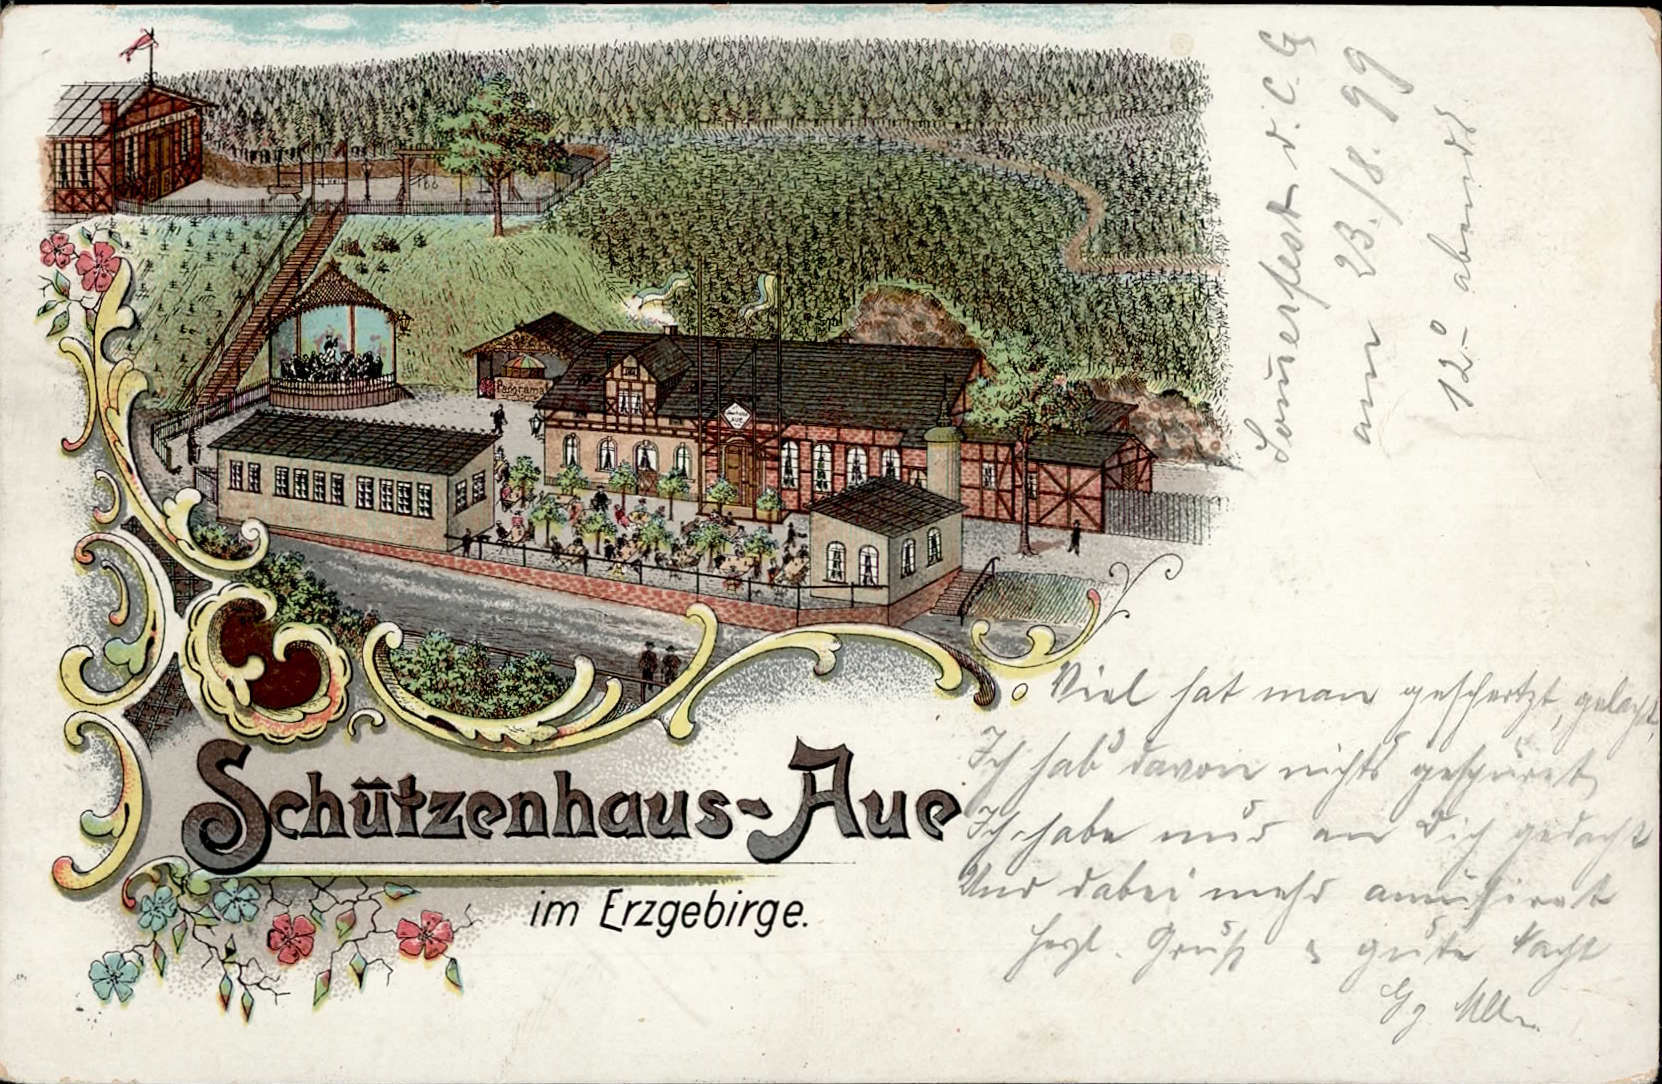 Sommerfest d. C. G
am 23./8. 99
12⁰ abends
Panorama
Viel hat man gescherzt, gelacht,
Ich hab' davon nichts gespüret
Ich habe nur an Dich gedacht
Und dabei mehr amüsiret
Herzl. Gruß & gute Nacht
Schützenhaus-Aue
im Erzgebirge.